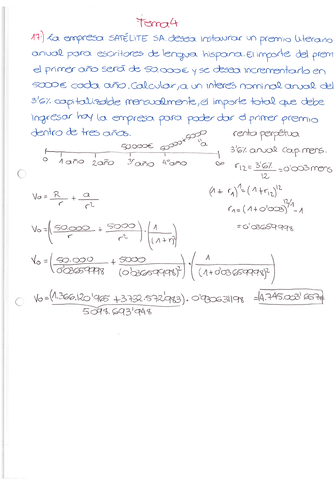 Tema 4
17) La empresa SATÉLITE SA desea instaurar un premio literario
anual para escritores de lengua hispana. El importe del prem
el primer año será de 50.000€ y se desea incrementarlo en
5000€ cada año. Calcular, a un interes nominal anual del
3'6% capitalizable mensualmente, el importe total que debe
ingresar hoy la empresa para poder dar el primer premio
dentro de tres años.
renta perpétua
50.000€ 50000+5000
a
0 1 año 2 año 3 año 4 año ∞
3'6% anual cap mens.
r12 = 3'6% / 12 = 0'003 mens
(1 + r1)^1 = (1 + r12)^12
r1 = (1 + 0'003)^12/1 - 1
= 0'03659998
Vo = R/r + a/r²
Vo = (50.000/r + 5000/r²) · (1/(1+r)²)
Vo = (50.000/0'03659998 + 5000/(0'03659998)²) · (1/(1+0'03659998)²)
Vo = (1.366.120'965 + 3.732.572'983) · 0'930631198 = 4.745.003'557€
5.098.693'948